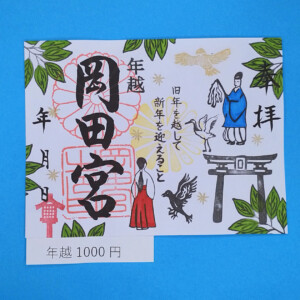 奉拝
旧年を越して
新年を迎えること
年越
岡田宮
年月日
年越1000円